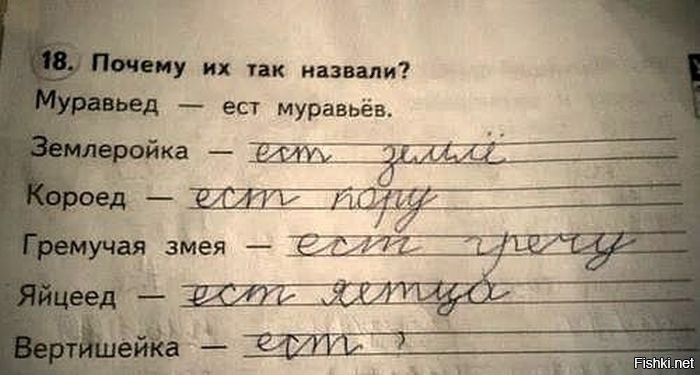 18. Почему их так назвали?
Муравьед — ест муравьёв.
Землеройка — ест землё
Короед — ест кору
Гремучая змея — ест гречу
Яйцеед — ест яетца
Вертишейка — ест ?
Fishki.net